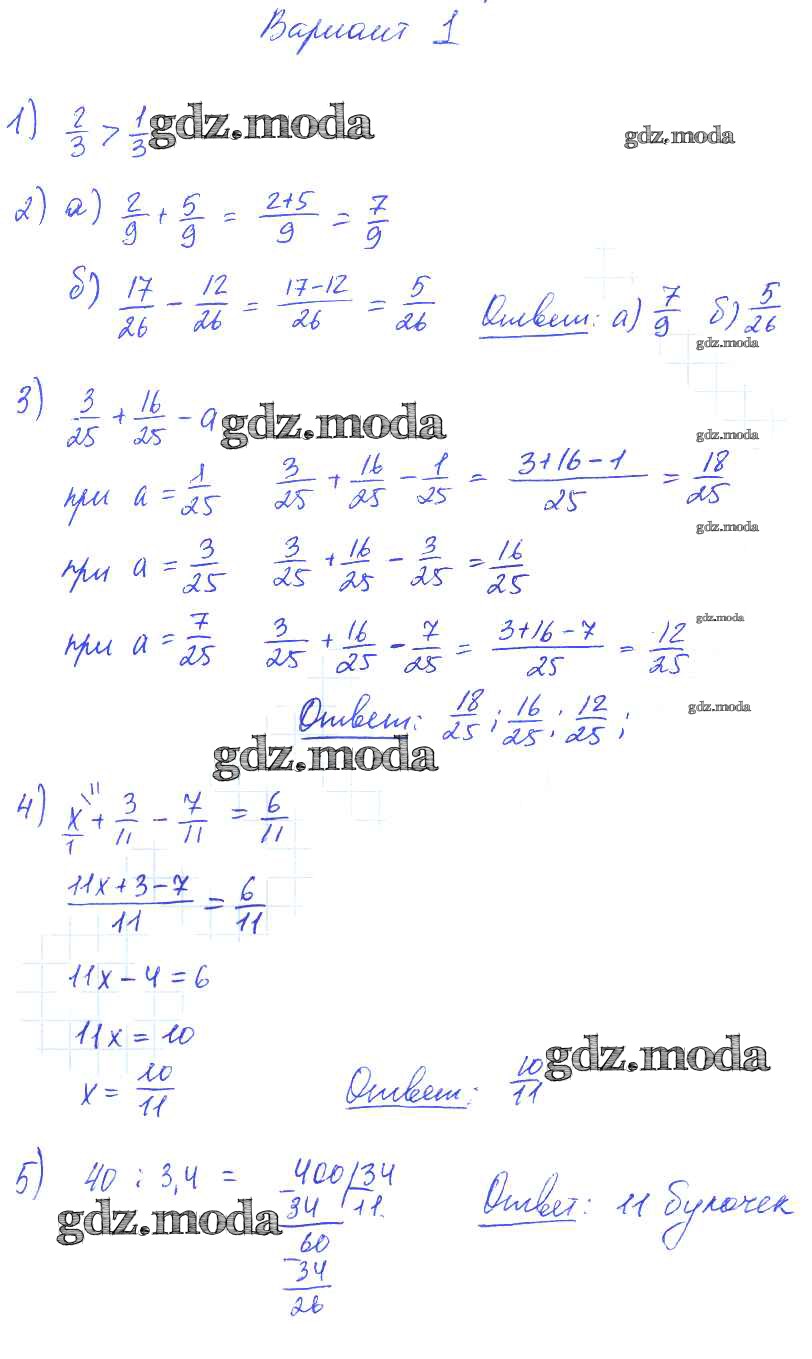 Вариант 1
1) 2/3 > 1/3 gdz.moda
gdz.moda
2) а) 2/9 + 5/9 = (2+5)/9 = 7/9
б) 17/26 − 12/26 = (17−12)/26 = 5/26 Ответ: а) 7/9 б) 5/26
gdz.moda
3) 3/25 + 16/25 − a gdz.moda
gdz.moda
при a = 1/25 3/25 + 16/25 − 1/25 = (3+16−1)/25 = 18/25
gdz.moda
при a = 3/25 3/25 + 16/25 − 3/25 = 16/25
gdz.moda
при a = 7/25 3/25 + 16/25 − 7/25 = (3+16−7)/25 = 12/25
Ответ: 18/25; 16/25; 12/25;
gdz.moda
gdz.moda
4) x/1 \11 + 3/11 − 7/11 = 6/11
(11x+3−7)/11 = 6/11
11x − 4 = 6
11x = 10
x = 10/11 Ответ: 10/11
gdz.moda
5) 40 : 3,4 = 400 34 Ответ: 11 булочек
−34 11
gdz.moda
60
−34
26